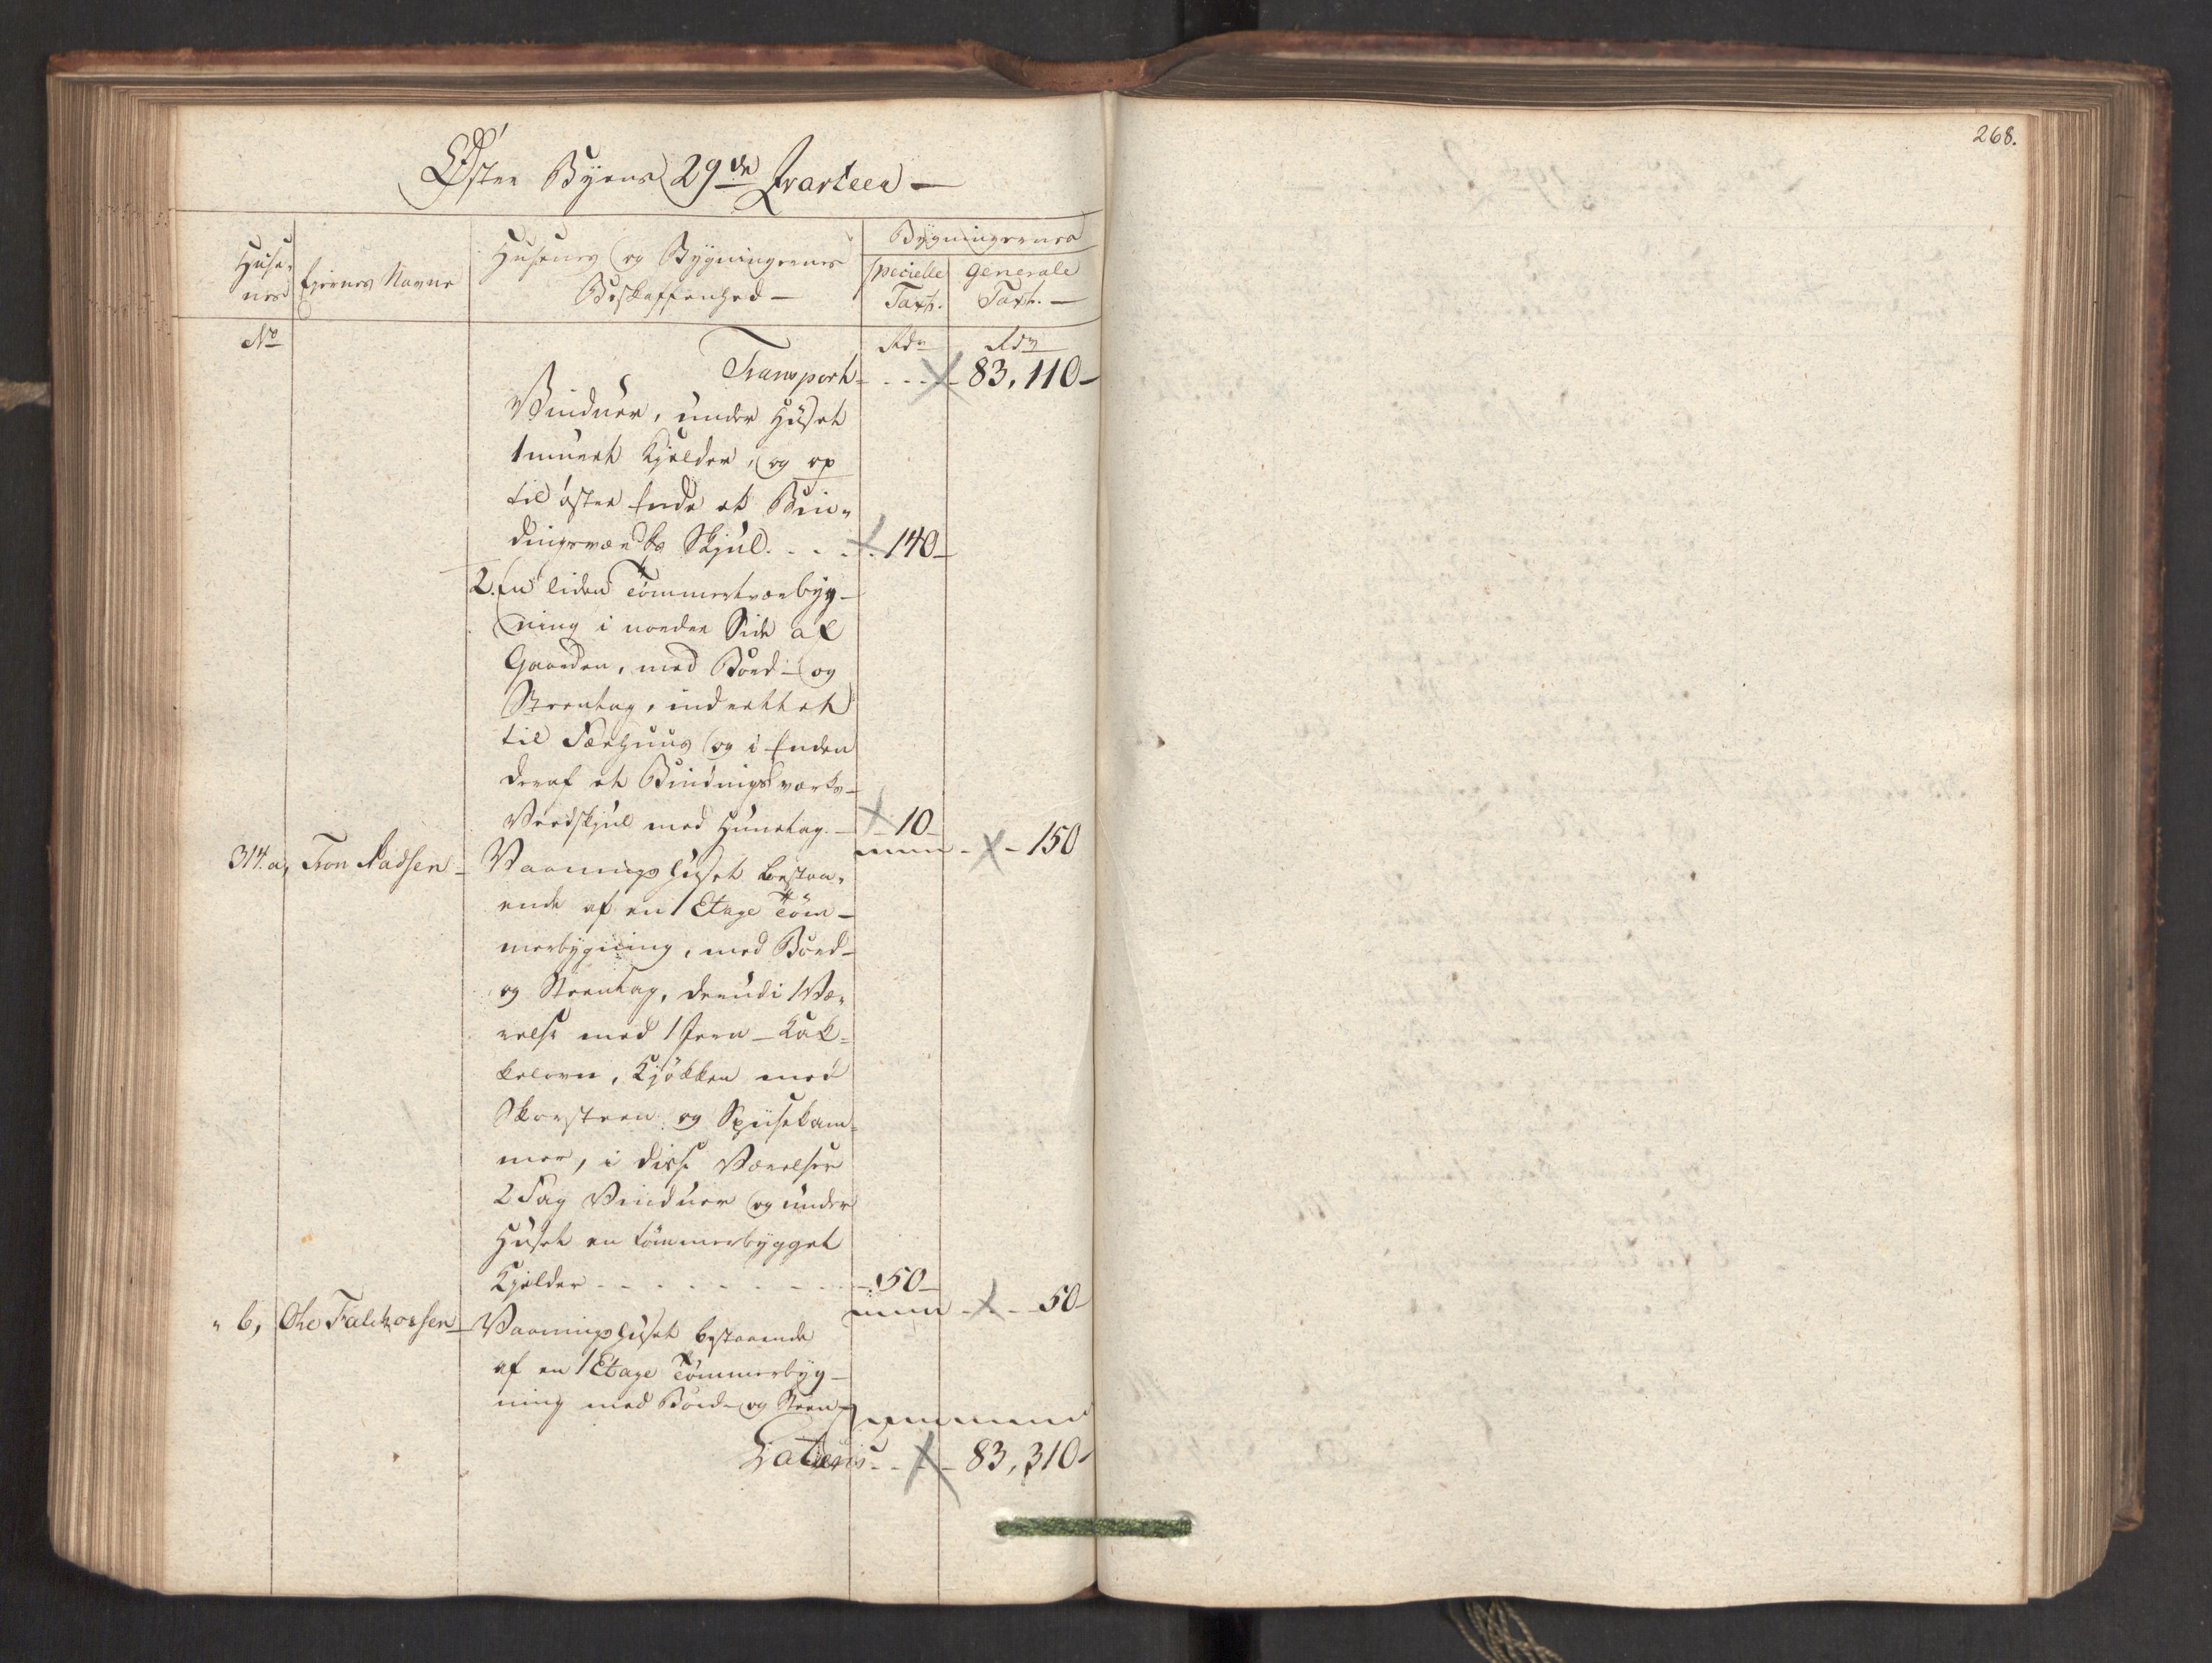 268.
Øster Byens 29de Qvarteer —
Huse-
nes
Ejernes Navne
Husenes og Bygningernes
Beskaffenhed —
Bygningernes
specielle
Taxt.
generale
Taxt. —
No
Rdr
Rdr
Transport - . . . 83,110 —
Vinduer, under Huset
1 muret Kjelder, og op
til øster Ende et Bin-
dingsværks Skjul . . . . 140 —
2. En liden Tømmertværbyg-
ning i norder Side af
Gaarden, med Bord- og
Steentag, indrettet
til Fæehuus og i Enden
deraf et Bindingsværks-
Vedskjul med Hunetag. — 10 — 150
314.a, Tron Madsen — Vaaningshuset bestaa-
ende af en 1 Etage Tøm-
merbygning, med Bord-
og Steentag, derudi 1 Væ-
relse med 1 Jern-Kak-
kelovn, Kjøkken med
Skorsteen og Spisekam-
mer, i disse Værelser
2 Fag Vinduer og under
Huset en tømmerbygget
Kjelder - - - - - - - 50 — 50 —
" b, Ole Falchorsen — Vaaningshuset bestaaende
af en 1 Etage Tømmerbyg-
ning med Bord- og Steen-
Lateris - . . 83,310 —